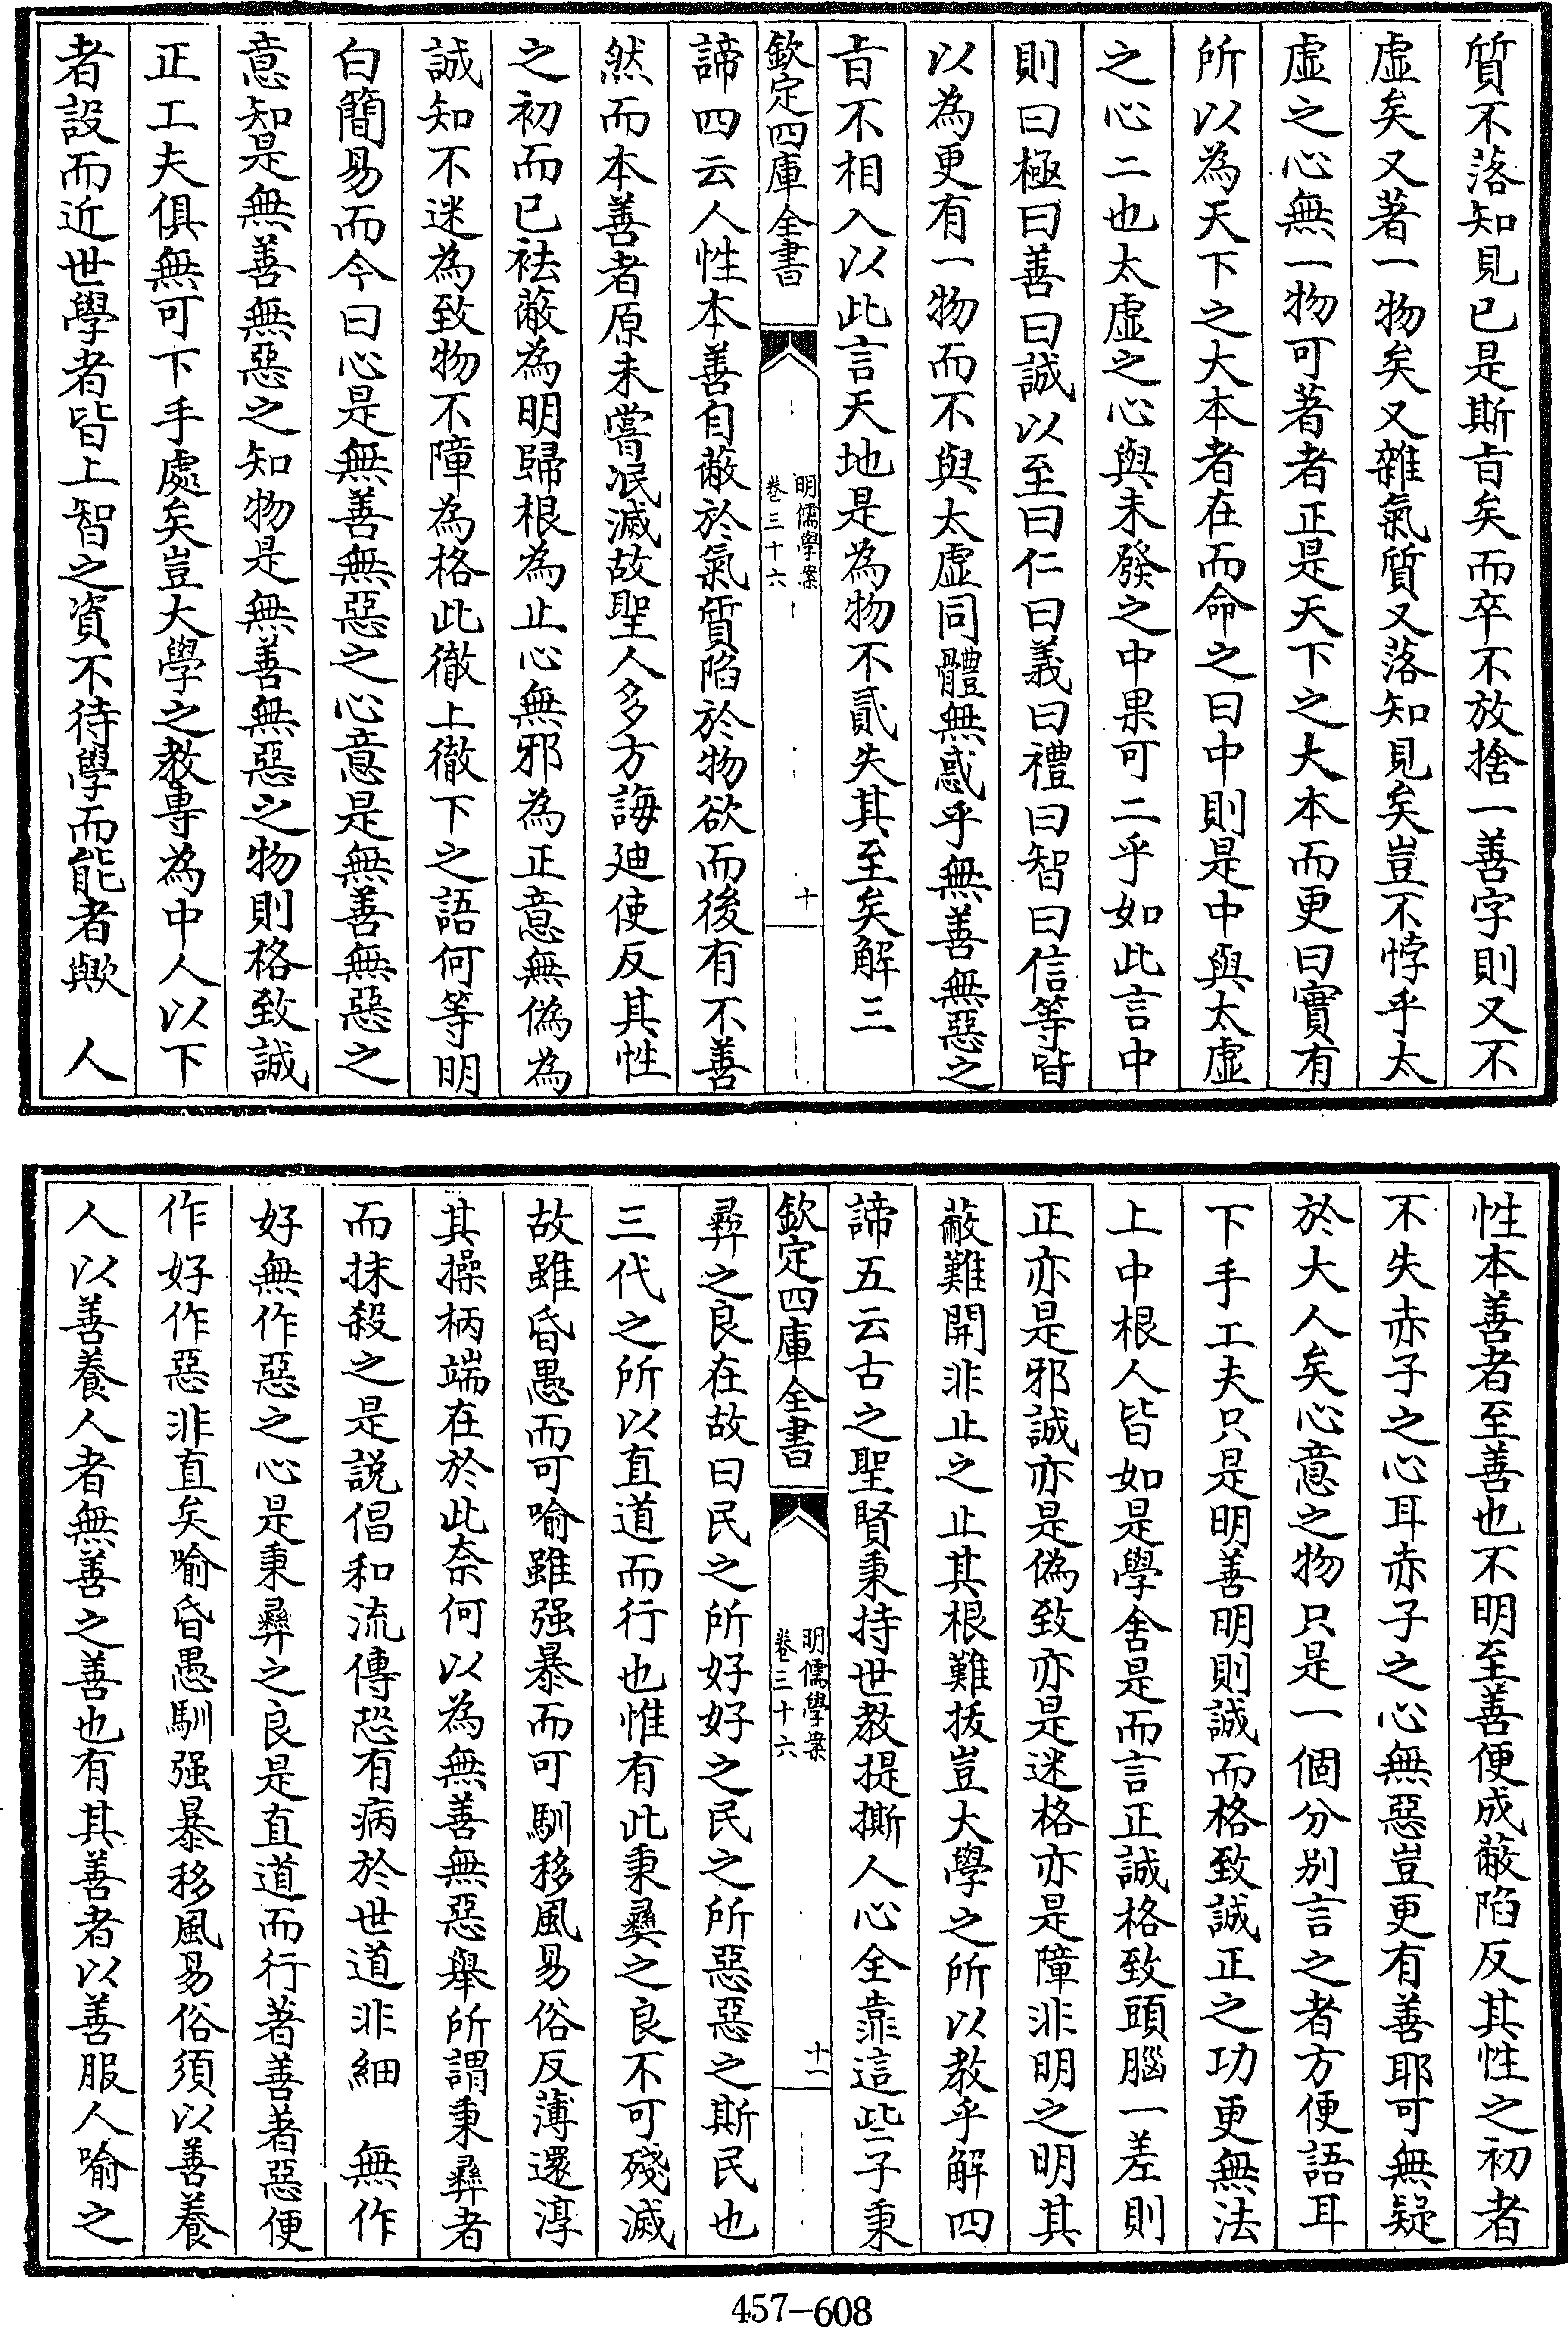 質不落知見已是斯㫖矣而卒不放捨一善字則又不
虛矣又著一物矣又雜氣質又落知見矣豈不悖乎太
虛之心無一物可著者正是天下之大本而更曰實有
所以為天下之大本者在而命之曰中則是中與太虛
之心二也太虛之心與未發之中果可二乎如此言中
則曰極曰善曰誠以至曰仁曰義曰禮曰智曰信等皆
以為更有一物而不與太虛同體無惑乎無善無惡之
㫖不相入以此言天地是為物不貳失其至矣解三
欽定四庫全書
明儒學案
卷三十六
十
諦四云人性本善自蔽於氣質陷於物欲而後有不善
然而本善者原未嘗泯滅故聖人多方誨廸使反其性
之初而已袪蔽為明歸根為止心無邪為正意無偽為
誠知不迷為致物不障為格此徹上徹下之語何等明
白簡易而今曰心是無善無惡之心意是無善無惡之
意知是無善無惡之知物是無善無惡之物則格致誠
正工夫俱無可下手處矣豈大學之教專為中人以下
者設而近世學者皆上智之資不待學而能者歟　人
性本善者至善也不明至善便成蔽陷反其性之初者
不失赤子之心耳赤子之心無惡豈更有善耶可無疑
於大人矣心意之物只是一個分别言之者方便語耳
下手工夫只是明善明則誠而格致誠正之功更無法
上中根人皆如是學舍是而言正誠格致頭腦一差則
正亦是邪誠亦是偽致亦是迷格亦是障非明之明其
蔽難開非止之止其根難拔豈大學之所以教乎解四
諦五云古之聖賢秉持世教提撕人心全靠這些子秉
欽定四庫全書
明儒學案
卷三十六
十一
彛之良在故曰民之所好好之民之所惡惡之斯民也
三代之所以直道而行也惟有此秉彛之良不可殘滅
故雖昏愚而可喻雖强暴而可馴移風易俗反薄還淳
其操柄端在於此奈何以為無善無惡舉所謂秉彛者
而抹殺之是說倡和流傳恐有病於世道非細　無作
好無作惡之心是秉彛之良是直道而行著善著惡便
作好作惡非直矣喻昏愚馴强暴移風易俗須以善養
人以善養人者無善之善也有其善者以善服人喻之
457-608